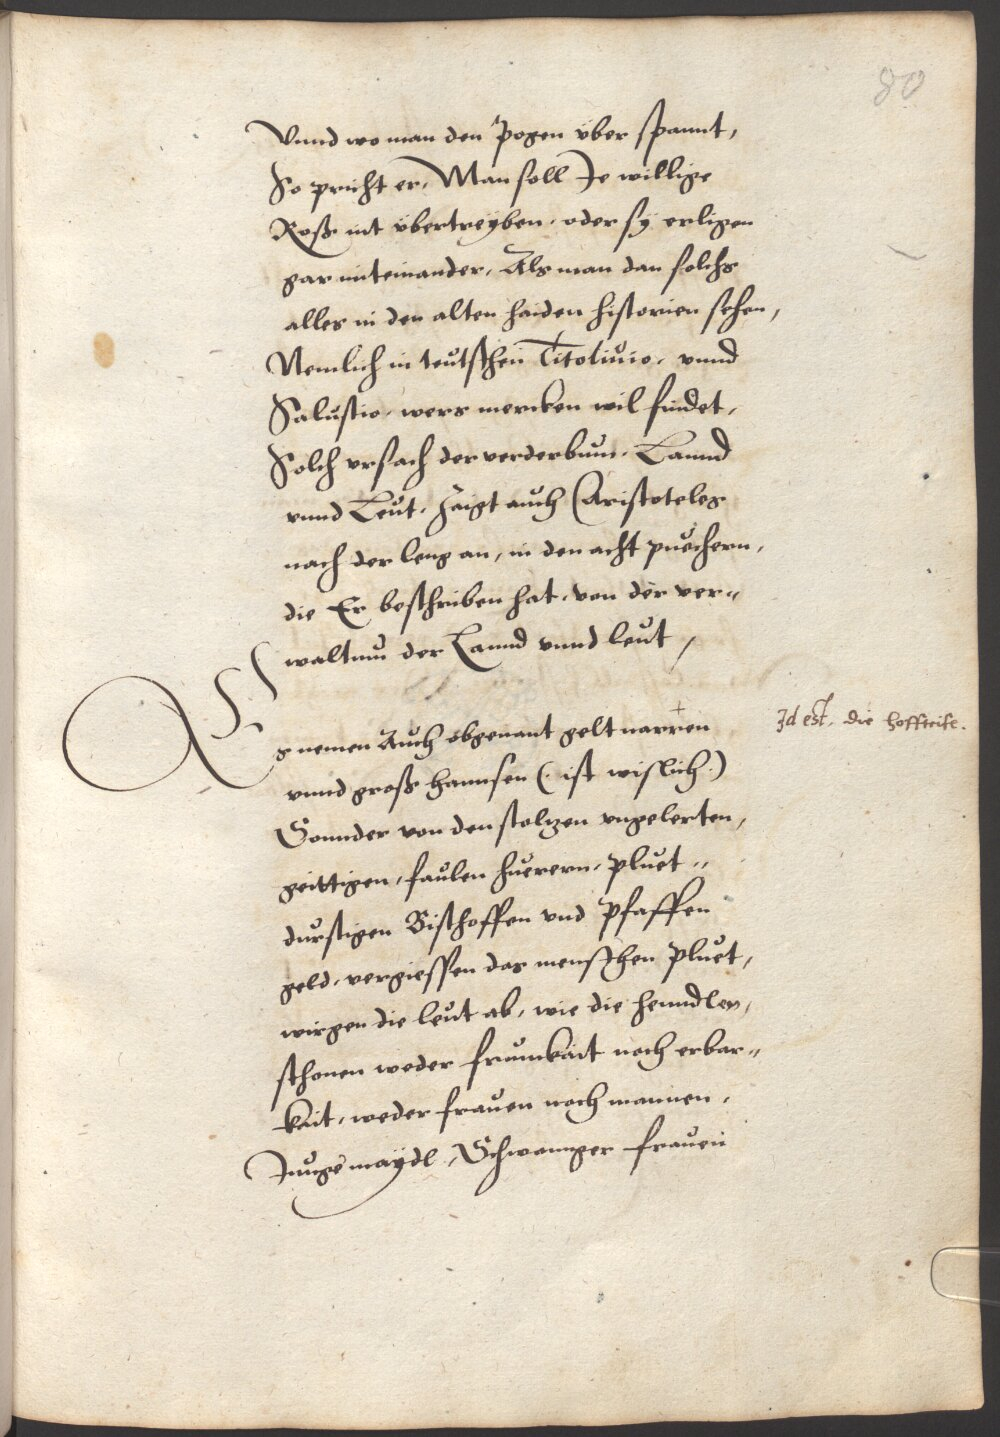 80
Vnnd wo man den Pogen vber spannt,
So pricht er, Man soll Je willige
Roß nit vbertreyben, oder sy erligen
gar miteinander, Als man dan solchs
alles in den alten haiden historien sehen,
Nemlich in teutschen Titoliuio, vnnd
Salustio, wers mercken wil findet,
Solch vrsach der verderbung, Lannd
vnnd Leut, zaigt auch Aristoteles
nach der leng an, in den acht puechern,
die Er beschriben hat, von der ver=
waltung der Lannd vnnd leut,
Es nemen Auch obgenant gelt narren +
Id est, die hoffleite.
vnnd groß hannsen (: ist wislich :)
Sonnder von den stoltzen vngelerten,
geittigen, faulen huerern, pluet=
durstigen Bischoffen vnd Pfaffen
geld, vergiessen das menschen pluet,
wirgen die leut ab, wie die henndlen,
schonen weder frumkait noch erbar=
kait, weder frauen noch mannen,
Junge maydl, Schwannger frauen